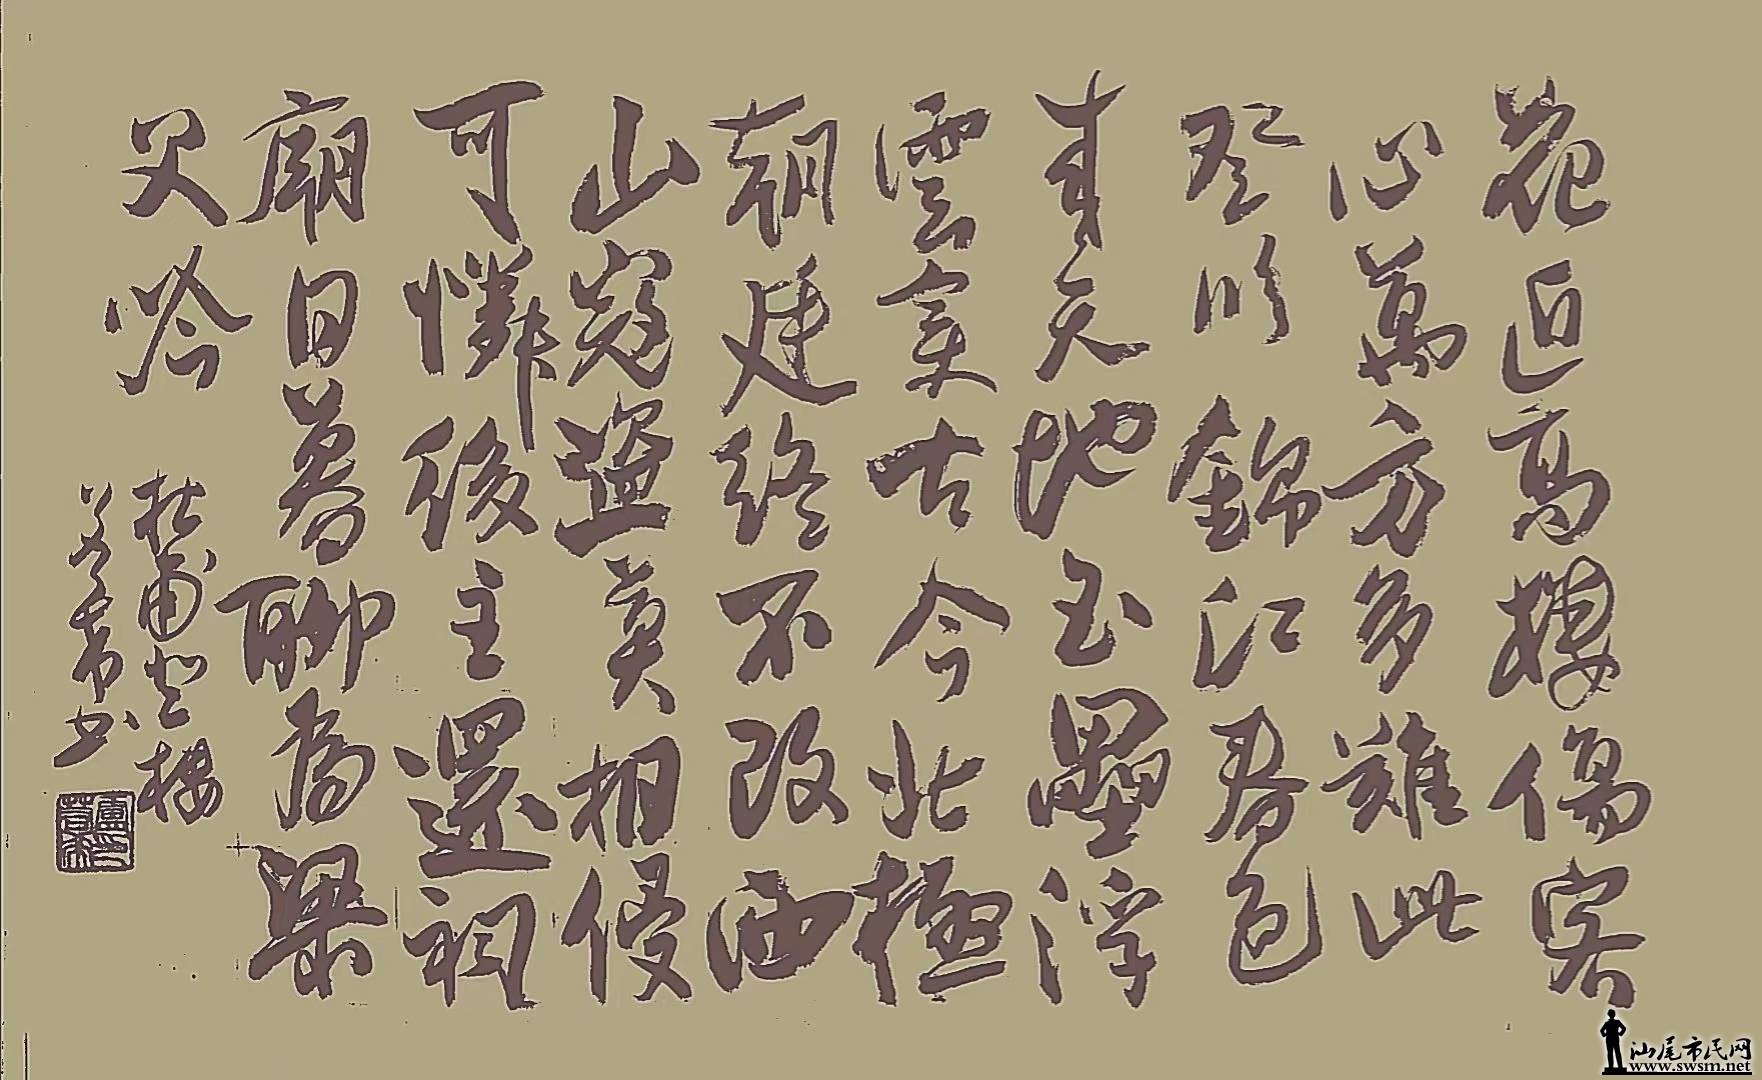 花近高樓傷客
心萬方多難此
登临錦江春色
来天地玉壘浮
雲变古今北極
朝廷終不改西
山寇盜莫相侵
可憐後主還祠
廟日暮聊為梁
父吟
杜甫登樓
书
汕尾市民网
www.swsm.net